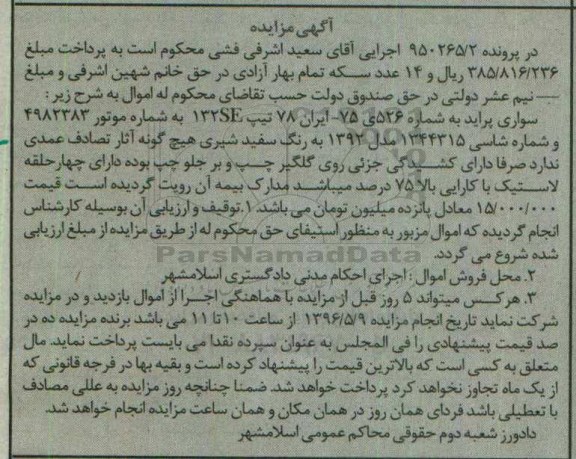 آگهی مزایده
در پرونده ۹۵۰۲۶۵/۲ اجرایی آقای سعید اشرفی فشی محکوم است به پرداخت مبلغ
۳۸۵/۸۱۶/۲۳۶ ریال و ۱۴ عدد سکه تمام بهار آزادی در حق خانم شهین اشرفی و مبلغ
— نیم عشر دولتی در حق صندوق دولت حسب تقاضای محکوم له اموال به شرح زیر :
سواری پراید به شماره ۵۲۶دی ۷۵- ایران ۷۸ تیپ ۱۳۲SE به شماره موتور ۴۹۸۲۳۸۳
و شماره شاسی ۱۳۴۴۳۱۵ مدل ۱۳۹۲ به رنگ سفید شیری هیچ گونه آثار تصادف عمدی
ندارد صرفا دارای کشیدگی جزئی روی گلگیر چپ و بر جلو چپ بوده دارای چهارحلقه
لاستیک با کارایی بالا ۷۵ درصد میباشد مدارک بیمه آن رویت گردیده است قیمت
۱۵/۰۰۰/۰۰۰ معادل پانزده میلیون تومان می باشد. ۱.توقیف و ارزیابی آن بوسیله کارشناس
انجام گردیده که اموال مزبور به منظور استیفای حق محکوم له از طریق مزایده از مبلغ ارزیابی
شده شروع می گردد.
ParsNamadData
۲. محل فروش اموال : اجرای احکام مدنی دادگستری اسلامشهر
۳. هرکس میتواند ۵ روز قبل از مزایده با هماهنگی اجرا از اموال بازدید و در مزایده
شرکت نماید تاریخ انجام مزایده ۱۳۹۶/۵/۹ از ساعت ۱۰ تا ۱۱ می باشد برنده مزایده ده در
صد قیمت پیشنهادی را فی المجلس به عنوان سپرده نقدا می بایست پرداخت نماید. مال
متعلق به کسی است که بالاترین قیمت را پیشنهاد کرده است و بقیه بها در فرجه قانونی که
از یک ماه تجاوز نخواهد کرد پرداخت خواهد شد. ضمنا چنانچه روز مزایده به عللی مصادف
با تعطیلی باشد فردای همان روز در همان مکان و همان ساعت مزایده انجام خواهد شد.
دادورز شعبه دوم حقوقی محاکم عمومی اسلامشهر